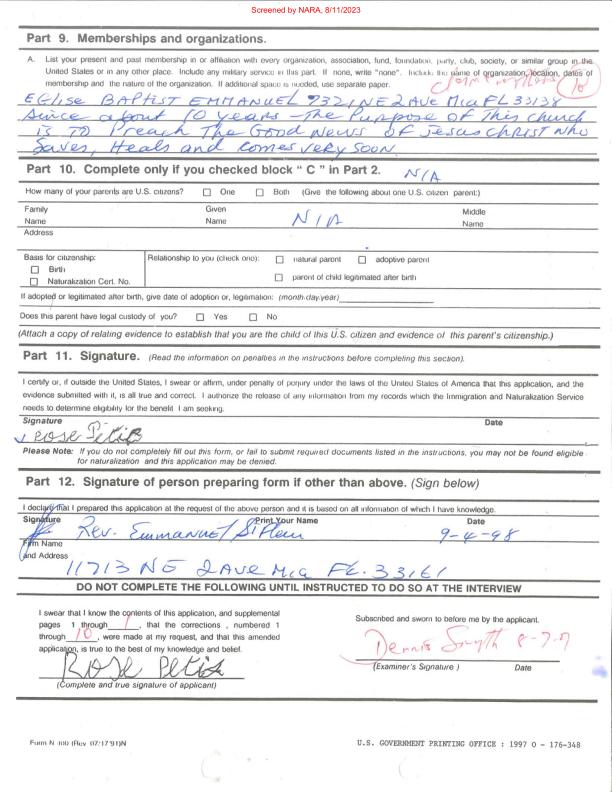 Screened by NARA, 8/11/2023
Part 9. Memberships and organizations.
A. List your present and past membership in or affiliation with every organization, association, fund, foundation, party, club, society, or similar group in the
United States or in any other place. Include any military service in this part. If none, write "none". Include the name of organization, location, dates of
membership and the nature of the organization. If additional space is needed, use separate paper.
10
EGlise BAPTIST EMMANUEL 9321 NE 2 AVE Mia FL 33138
Since about 10 years - the Purpose of This church
is TO Preach The Good News OF Jesus CHRIST who
Saves, Heals and comes very soon
Part 10. Complete only if you checked block " C " in Part 2. N/A
How many of your parents are U.S. citizens? One Both (Give the following about one U.S. citizen parent:)
Family Given Middle
Name Name N/A Name
Address
Basis for citizenship: Relationship to you (check one): natural parent adoptive parent
Birth
Naturalization Cert. No. parent of child legitimated after birth
If adopted or legitimated after birth, give date of adoption or, legitimation: (month/day/year)
Does this parent have legal custody of you? Yes No
(Attach a copy of relating evidence to establish that you are the child of this U.S. citizen and evidence of this parent's citizenship.)
Part 11. Signature. (Read the information on penalties in the instructions before completing this section).
I certify or, if outside the United States, I swear or affirm, under penalty of perjury under the laws of the United States of America that this application, and the
evidence submitted with it, is all true and correct. I authorize the release of any information from my records which the Immigration and Naturalization Service
needs to determine eligibility for the benefit I am seeking.
Signature Date
rose Petit
Please Note: If you do not completely fill out this form, or fail to submit required documents listed in the instructions, you may not be found eligible
for naturalization and this application may be denied.
Part 12. Signature of person preparing form if other than above. (Sign below)
I declare that I prepared this application at the request of the above person and it is based on all information of which I have knowledge.
Signature Print Your Name Date
Rev. Emmanuel 9-4-98
Firm Name
and Address
11713 NE 2 Ave Mia FL. 33161
DO NOT COMPLETE THE FOLLOWING UNTIL INSTRUCTED TO DO SO AT THE INTERVIEW
I swear that I know the contents of this application, and supplemental
pages 1 through , that the corrections , numbered 1
through 10 , were made at my request, and that this amended
application, is true to the best of my knowledge and belief.
Rose Petit
(Complete and true signature of applicant)
Subscribed and sworn to before me by the applicant.
Dennis Smyth
(Examiner's Signature ) Date
Form N-400 (Rev. 07/17/91)N
U.S. GOVERNMENT PRINTING OFFICE : 1997 O - 176-348